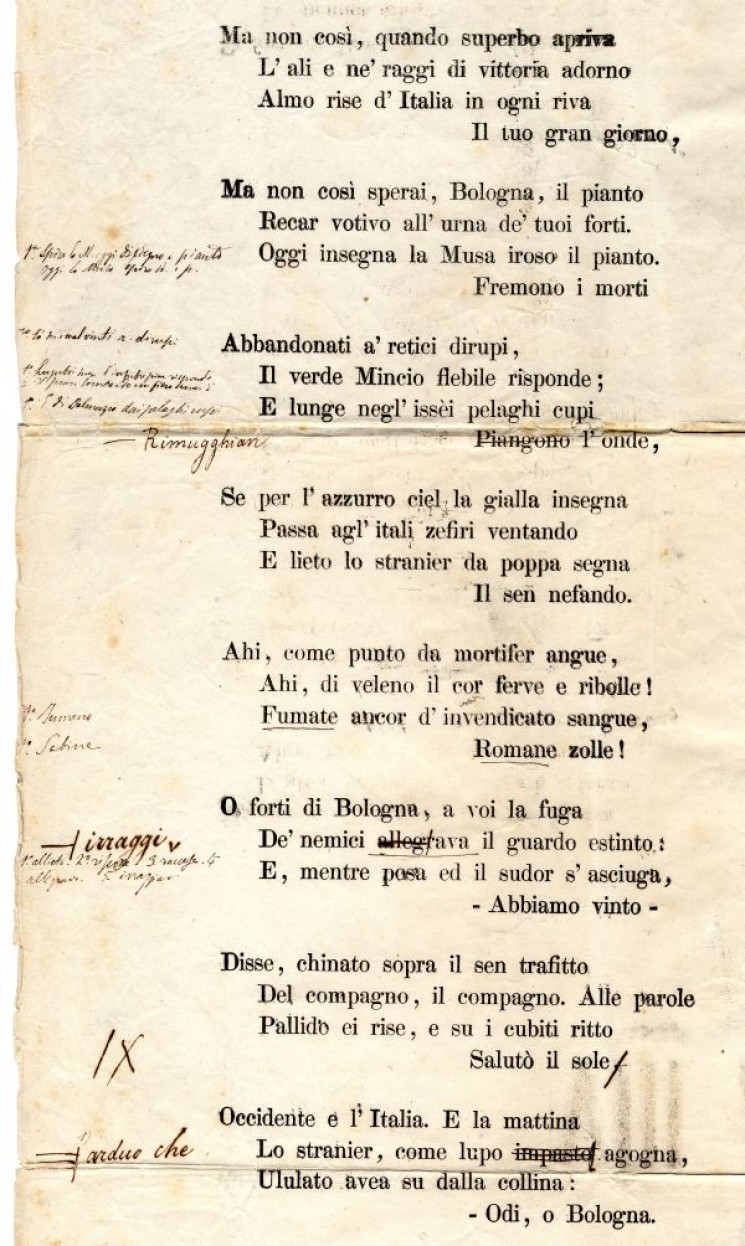 Ma non così, quando superbo apriva
L' ali e ne' raggi di vittoria adorno
Almo rise d' Italia in ogni riva
Il tuo gran giorno,
Ma non così sperai, Bologna, il pianto
Recar votivo all' urna de' tuoi forti.
Oggi insegna la Musa iroso il pianto.
Fremono i morti
Abbandonati a' retici dirupi,
Il verde Mincio flebile risponde;
E lunge negl' issèi pelaghi cupi
Rimugghian
Piangono l' onde,
Se per l' azzurro ciel la gialla insegna
Passa agl' itali zefiri ventando
E lieto lo stranier da poppa segna
Il sen nefando.
Ahi, come punto da mortifer angue,
Ahi, di veleno il cor ferve e ribolle!
Fumate ancor d' invendicato sangue,
Sabine
Romane zolle!
O forti di Bologna, a voi la fuga
irraggi
De' nemici allegrava il guardo estinto:
E, mentre posa ed il sudor s' asciuga,
- Abbiamo vinto -
Disse, chinato sopra il sen trafitto
Del compagno, il compagno. Alle parole
Pallido ei rise, e su i cubiti ritto
Salutò il sole
IX
Occidente e l' Italia. E la mattina
arduo che
Lo stranier, come lupo impasto agogna,
Ululato avea su dalla collina:
- Odi, o Bologna.